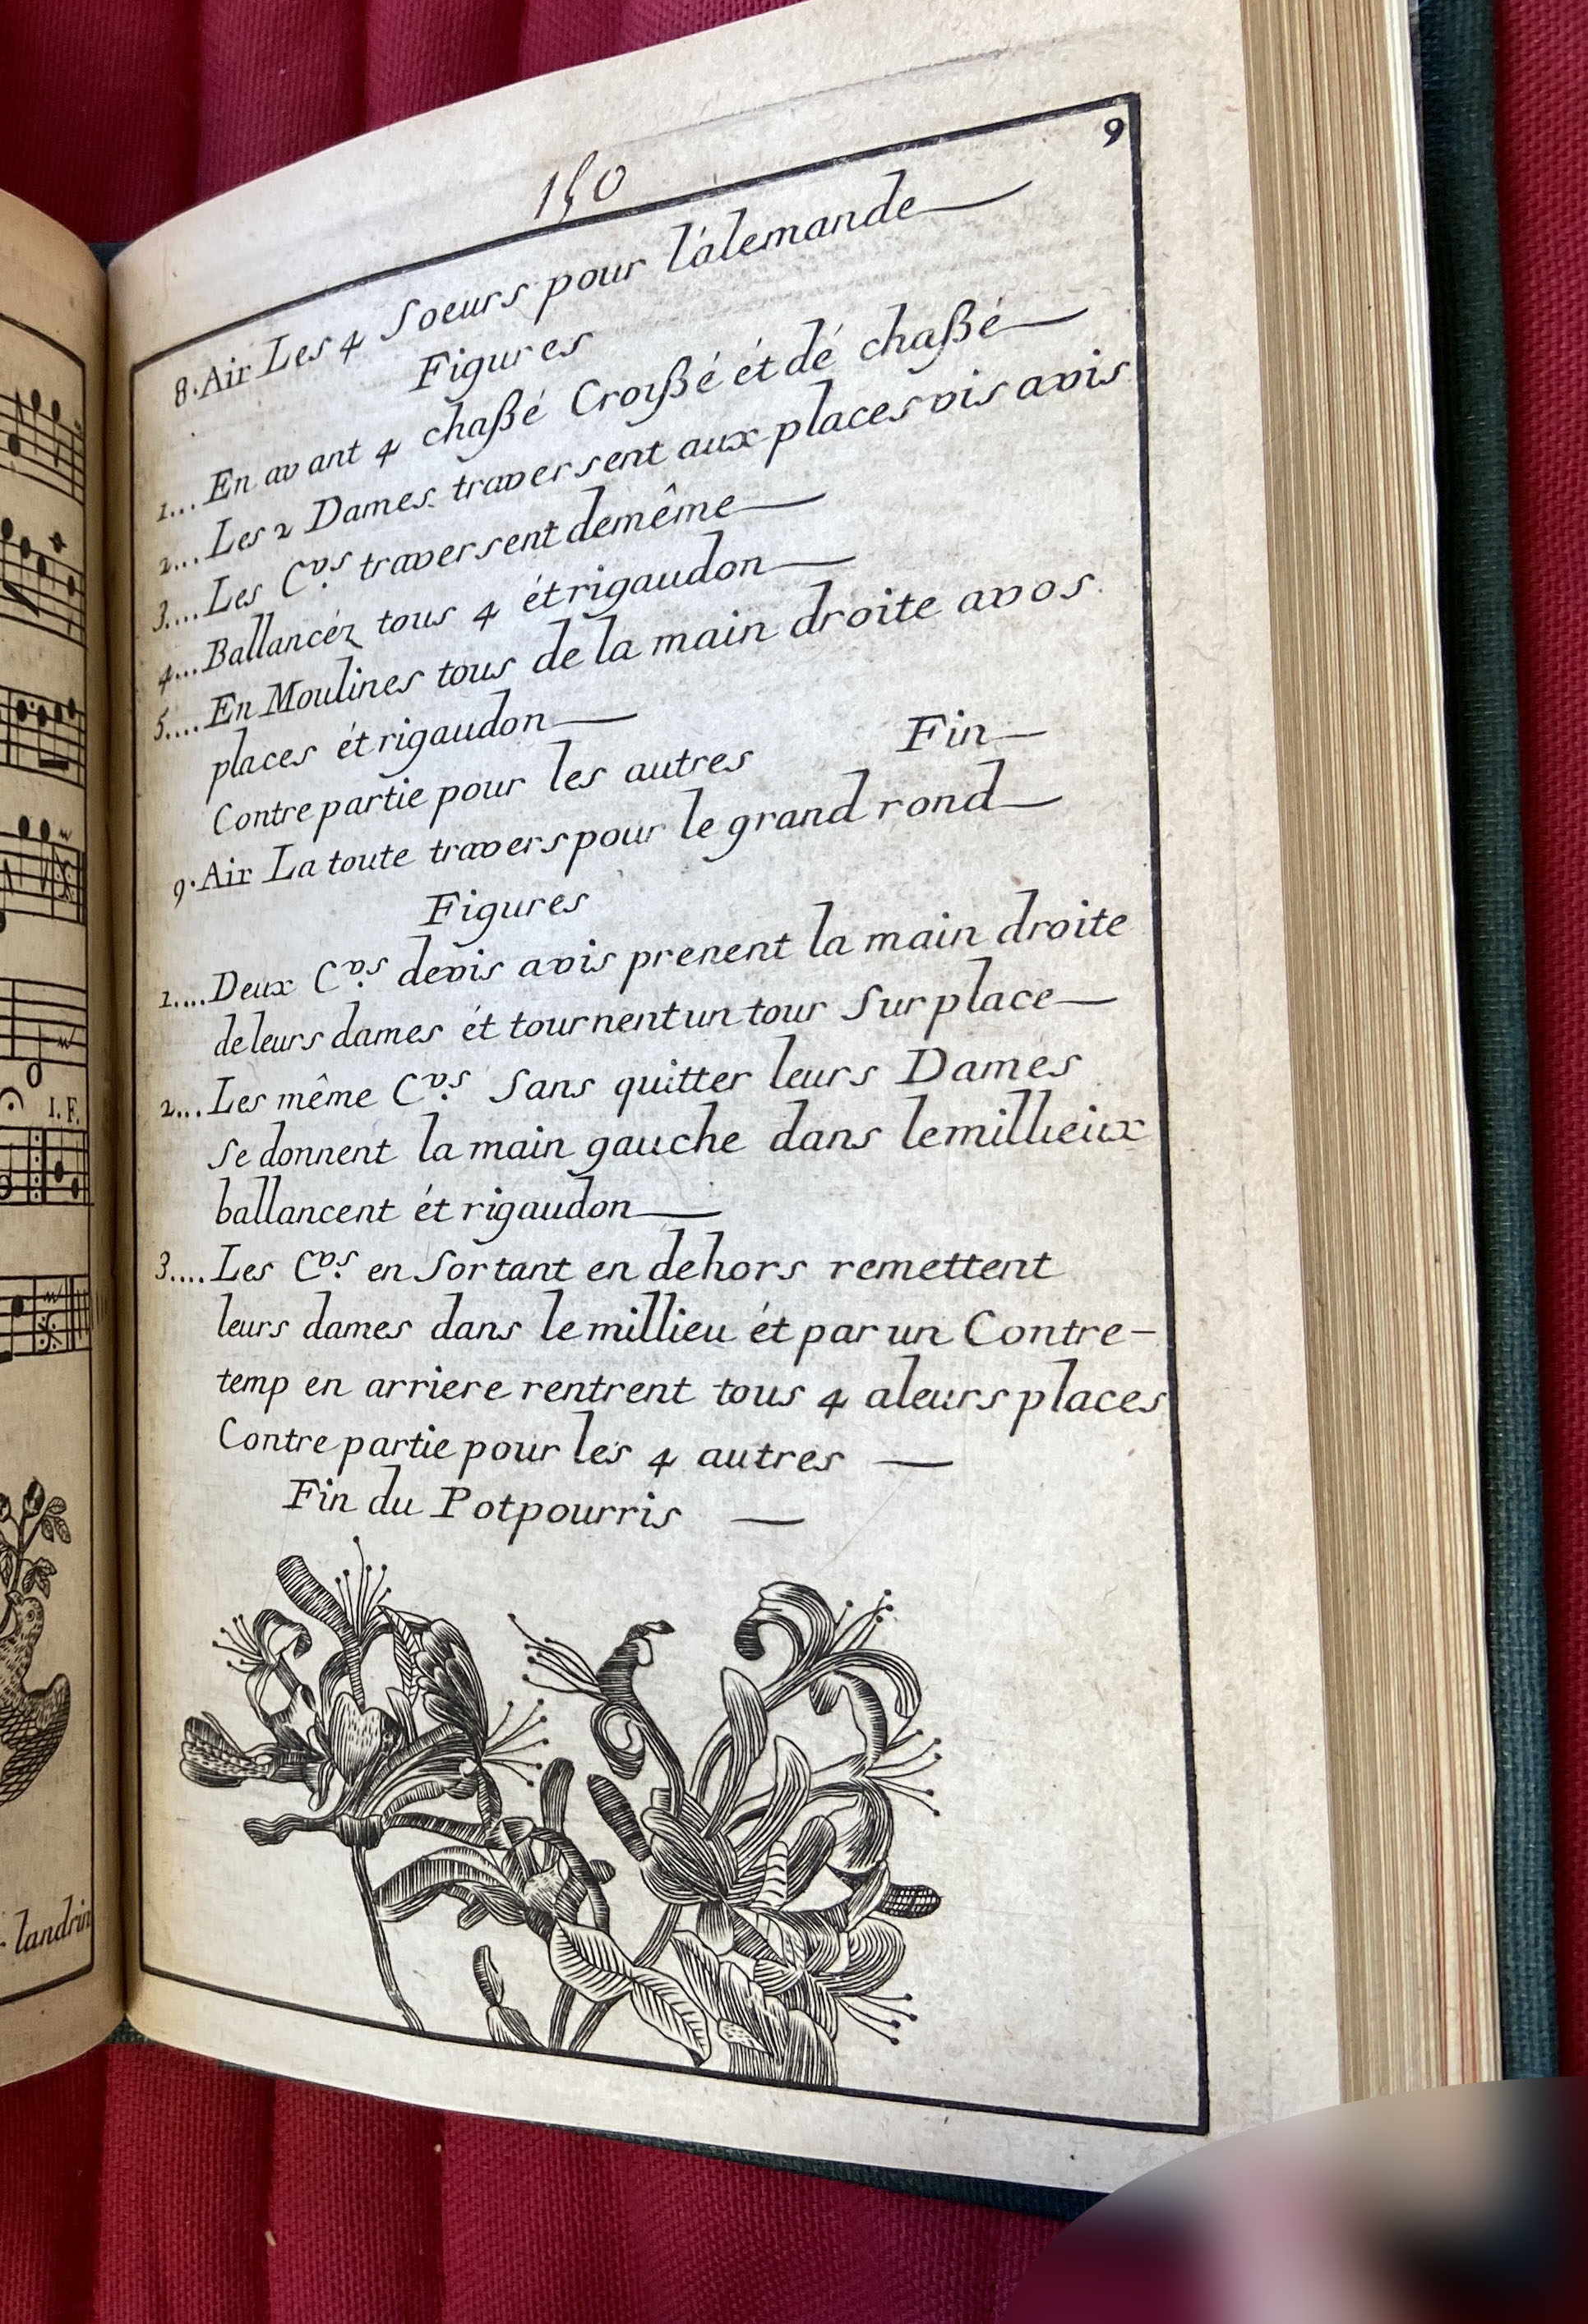 150
9
8. Air Les 4 Soeurs pour l'alemande
Figures
1... En avant 4 chaßé Croißé ét dé chaßé
2... Les 2 Dames traversent aux places vis avis
3.... Les Cvs. traversent demême
4... Ballancéz tous 4 ét rigaudon
5.... En Moulines tous de la main droite avos
places ét rigaudon
Contre partie pour les autres Fin
9. Air La toute travers pour le grand rond
Figures
1.... Deux Cvs. devis avis prenent la main droite
de leurs dames ét tournent un tour Sur place
2... Les même Cvs. Sans quitter leurs Dames
Se donnent la main gauche dans le millieux
ballancent ét rigaudon
3.... Les Cvs. en Sortant en dehors remettent
leurs dames dans le millieu ét par un Contre-
temp en arriere rentrent tous 4 a leurs places
Contre partie pour les 4 autres
Fin du Potpourris
I. F.
landrin